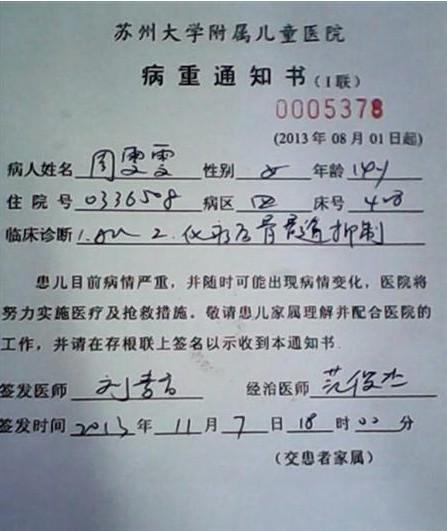 苏州大学附属儿童医院
病重通知书(I联)
0005378
(2013年08月01日起)
病人姓名 周雯雯 性别 女 年龄 14y
住院号 0336508 病区 四 床号 408
临床诊断 1. 2. 化疗后骨髓抑制
患儿目前病情严重,并随时可能出现病情变化,医院将
努力实施医疗及抢救措施。敬请患儿家属理解并配合医院的
工作,并请在存根联上签名以示收到本通知书.
签发医师 经治医师 范俊杰
签发时间 2013 年 11 月 7 日 18 时 00 分
(交患者家属)